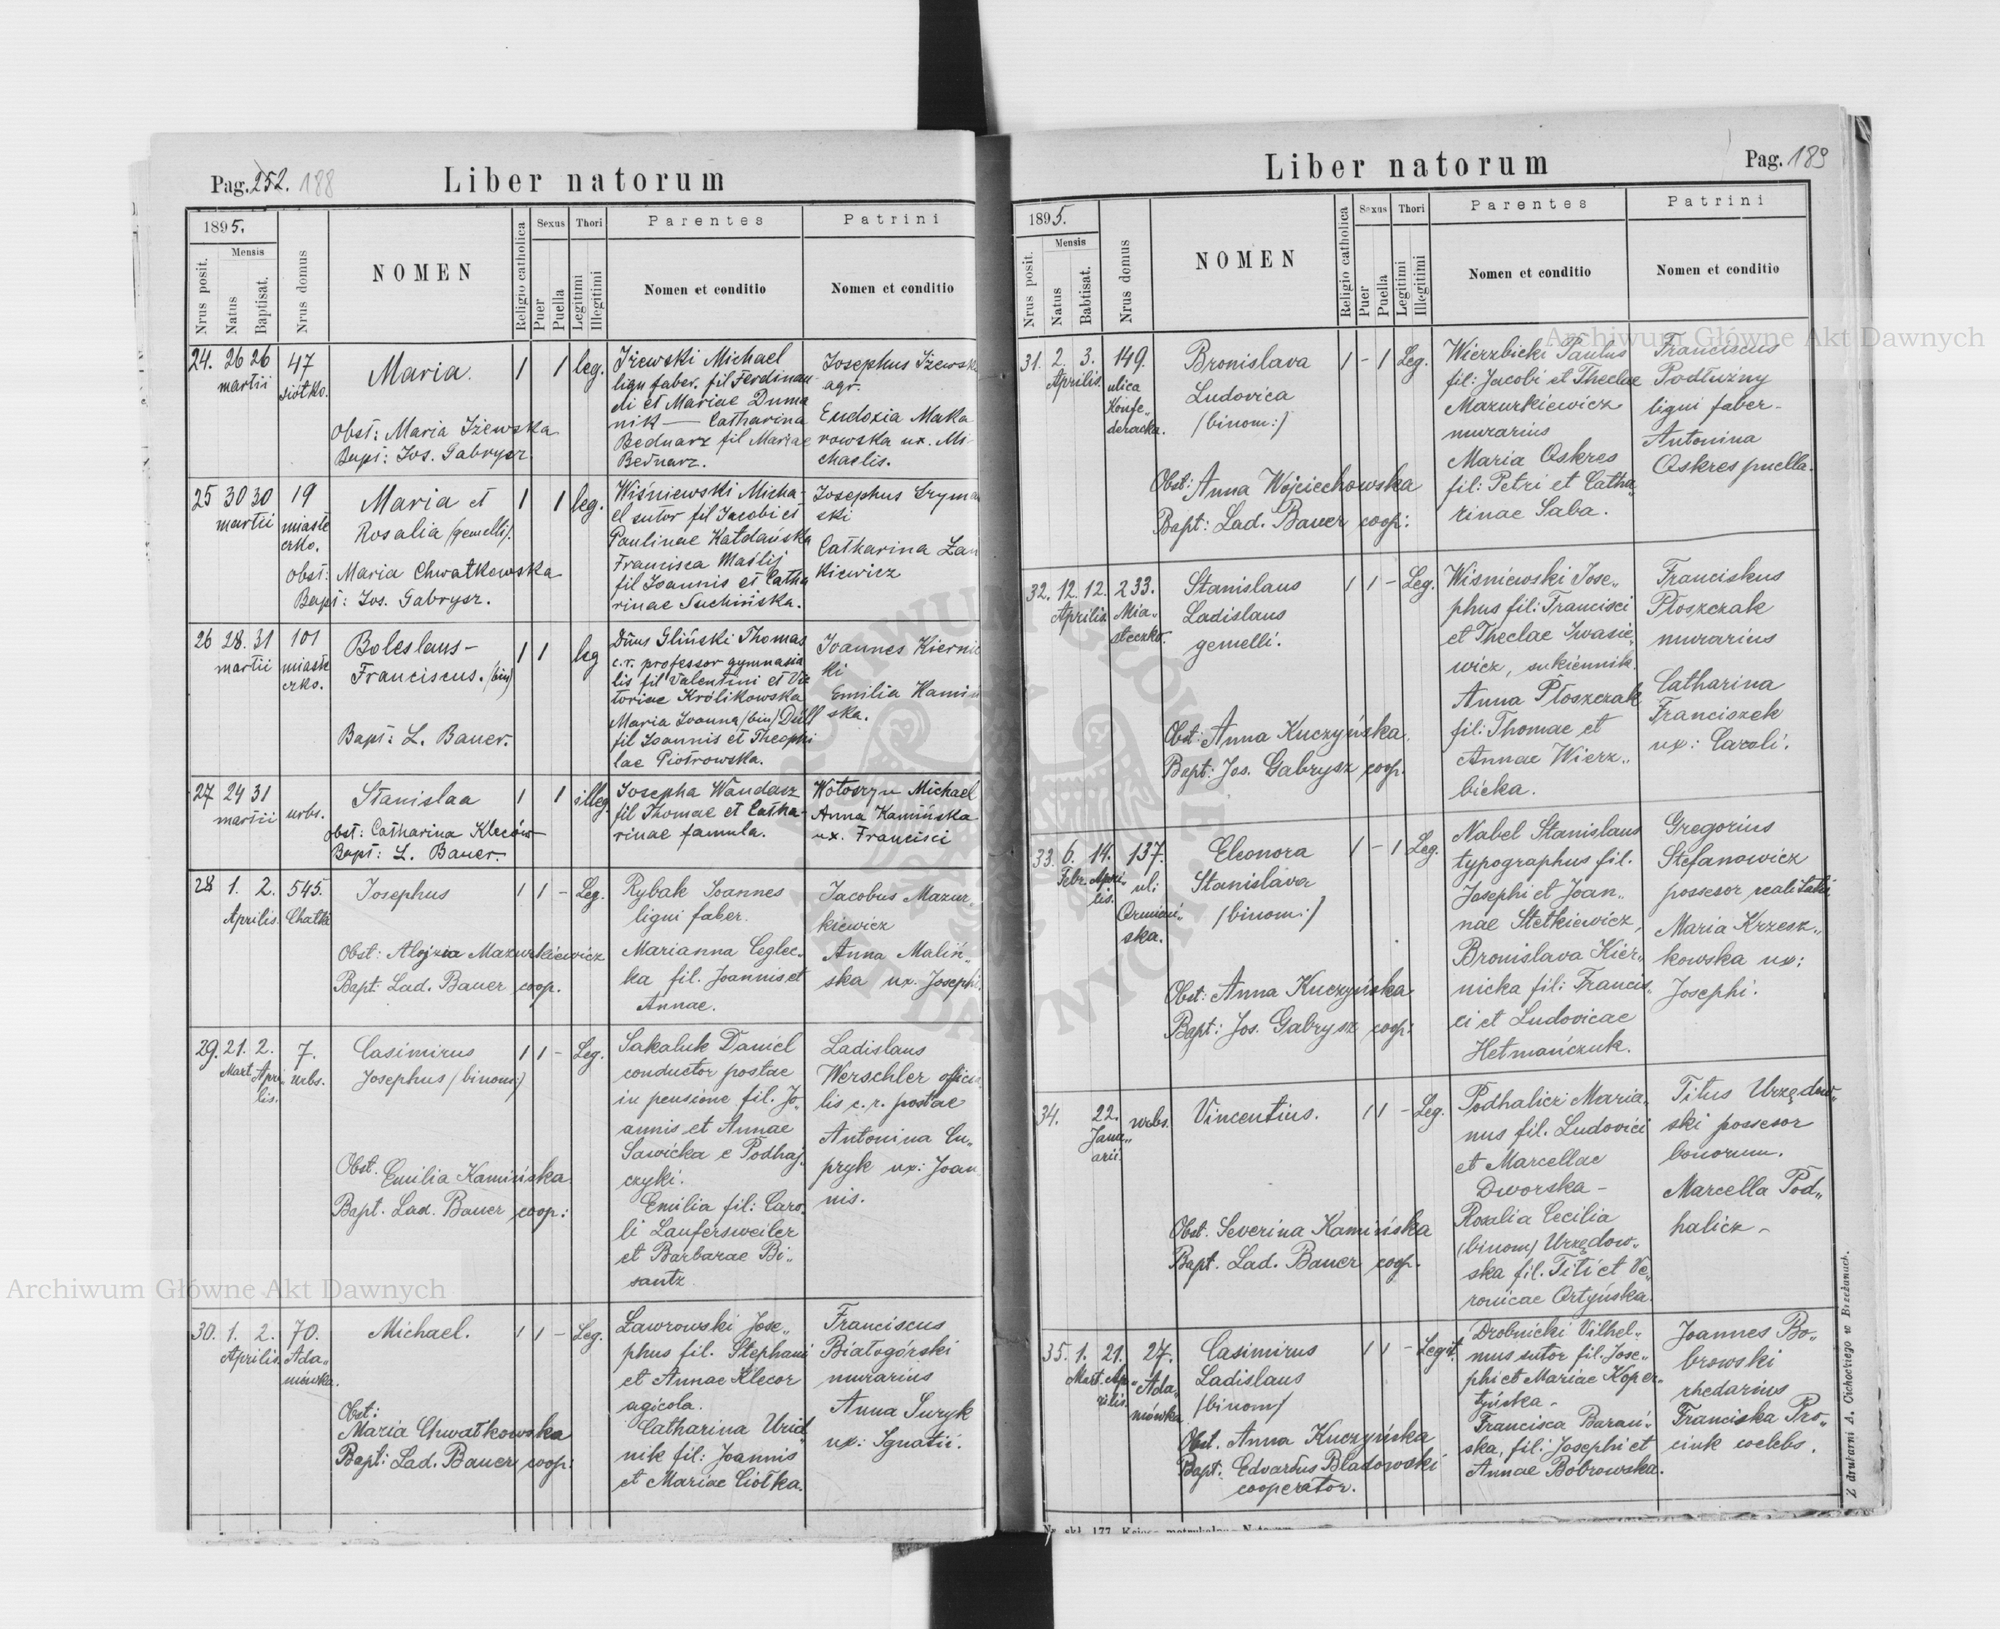 Pag. 252. 188
Liber natorum
1895.
Nrus posit.
Mensis
Natus
Baptisat.
Nrus domus
NOMEN
Religio catholica
Sexus
Puer
Puella
Thori
Legitimi
Illegitimi
Parentes
Nomen et conditio
Patrini
Nomen et conditio
24. 26 26 47 Maria. 1 1 leg.
martii siółko.
Obst: Maria Iżewska
Bapt: Jos. Gabrysz
Iżewski Michael
ligni faber. fil Ferdinan-
di et Mariae Duma
nik — Catharina
Bednarz fil Mariae
Bednarz.
Josephus Iżewski
agr.
Eudoxia Maka
rowska ux. Mi-
chaelis.
25 30 30 19 Maria et 1 1 leg.
martii miaste
czko.
Rosalia (gemelli).
Obst: Maria Chwatkowska
Bapt: Jos. Gabrysz.
Wiśniewski Micha-
el sutor fil Jacobi et
Paulinae Kałdańska
Francisca Maślij
fil Joannis et Catha
rinae Suchińska.
Josephus Szyma
ski
Catharina Zan
kiewicz
26 28. 31 101 Boleslaus - 1 1 leg
martii miaste
czko.
Franciscus. (bin)
Bapt: L. Bauer.
Dnus Gliński Thomas
c.r. professor gymnasia
lis fil Valentini et Vic
toriae Królikowska
Maria Ivanna (bin) Düll
fil Joannis et Theophi
lae Piotrowska.
Joannes Kiernic
ki
Emilia Kamiń
ska.
27 24 31 urbs. Stanislaa 1 1 illeg.
martii
Obst: Catharina Kleców
Bapt: L. Bauer.
Josepha Wandasz
fil Thomae et Catha-
rinae famula.
Wołoszyn Michael
Anna Kamińska
ux. Francisci
28 1. 2. 545. Josephus 1 1 - Leg.
Aprilis. Chatki
Obst: Alojzia Mazurkiewicz
Bapt. Lad. Bauer coop.
Rybak Joannes
ligni faber.
Marianna Ceglec-
ka fil. Joannis et
Annae.
Jacobus Mazur-
kiewicz
Anna Maliń-
ska ux. Josephi.
29. 21. 2. 7. Casimirus 1 1 - Leg.
Mart. Apri-
lis. urbs.
Josephus (binom:)
Obst. Emilia Kamińska
Bapt. Lad. Bauer coop:
Sakaluk Daniel
conductor postae
in pensione fil. Jo-
annis et Annae
Sawicka e Podhaj-
czyki.
Emilia fil: Caro-
li Laufersweiler
et Barbarae Bi-
santz
Ladislaus
Werschler officia
lis c. r. postae
Antonina Cu-
pryk ux: Joan
nis.
30. 1. 2. 70. Michael. 1 1 - Leg.
Aprilis. Ada-
mówka.
Obst:
Maria Chwatkowska
Bapt: Lad. Bauer coop:
Lawrowski Jose-
phus fil. Stephani
et Annae Klecor
agicola.
Catharina Urid
nik fil: Joannis
et Mariae Ciołka.
Franciscus
Białogórski
murarius
Anna Suryk
ux: Ignatii.
Liber natorum
Pag. 189
1895.
Nrus posit.
Mensis
Natus
Babtisat.
Nrus domus
NOMEN
Religio catholica
Sexus
Puer
Puella
Thori
Legitimi
Illegitimi
Parentes
Nomen et conditio
Patrini
Nomen et conditio
31. 2. 3. 149. Bronislava 1 - 1 Leg.
Aprilis. ulica
Konfe-
deracka.
Ludovica
(binom:)
Obst: Anna Wojciechowska
Bapt: Lad. Bauer coop:
Wierzbicki Paulus
fil: Jacobi et Theclae
Mazurkiewicz
murarius
Maria Oskres
fil: Petri et Catha-
rinae Saba.
Franciscus
Podłużny
ligni faber -
Antonina
Oskres puella.
32. 12. 12. 233. Stanislaus 1 1 - Leg.
Aprilis. Mia-
steczko.
Ladislaus
gemelli.
Obst: Anna Kuczyńska.
Bapt: Jos. Gabrysz coop.
Wisniewski Jose-
phus fil: Francisci
et Theclae Iwasie-
wicz, sukiennik.
Anna Płoszczak
fil: Thomae et
Annae Wierz-
bicka.
Franciskus
Płoszczak
murarius
Catharina
Franciszek
ux: Caroli.
33. 6. 14. 137. Eleonora 1 - 1 Leg.
Febr. Apri-
lis. ul:
Ormiań-
ska.
Stanislava
(binom:)
Obst: Anna Kuczyńska
Bapt: Jos. Gabrysz coop:
Nabel Stanislaus
typographus fil.
Josephi et Joan-
nae Stetkiewicz,
Bronislava Kier-
nicka fil: Francis-
ci et Ludovicae
Hetmańczuk.
Gregorius
Stefanowicz
possesor realitatis
Maria Krzesz-
kowska ux:
Josephi.
34. 22. urbs. Vincentius. 1 1 - Leg.
Janu-
arii.
Obst. Severina Kamińska
Bapt. Lad. Bauer coop.
Podhalicz Maria-
nus fil. Ludovici
et Marcellae
Dworska -
Rozalia Cecilia
(binom) Urzędow-
ska fil. Titi et Ve-
ronicae Ortyńska.
Titus Urzędow-
ski possesor
bonorum.
Marcella Pod-
halicz -
35. 1. 21. 27. Casimirus 1 1 - Legit.
Mart. Ap-
rilis. Ada-
mówka
Ladislaus
(binom)
Obst. Anna Kuczyńska
Bapt. Edvardus Bladowski
cooperator.
Drobnicki Vilhel-
mus sutor fil: Jose-
phi et Mariae Koper-
tyńska -
Francisca Barań-
ska, fil: Josephi et
Annae Bobrowska.
Joannes Bo-
browski
rhedarius
Franciska Pro-
ciuk coelebs.
Z drukarni A. Cichockiego w Brzeżanach.
Archiwum Główne Akt Dawnych
Archiwum Główne Akt Dawnych